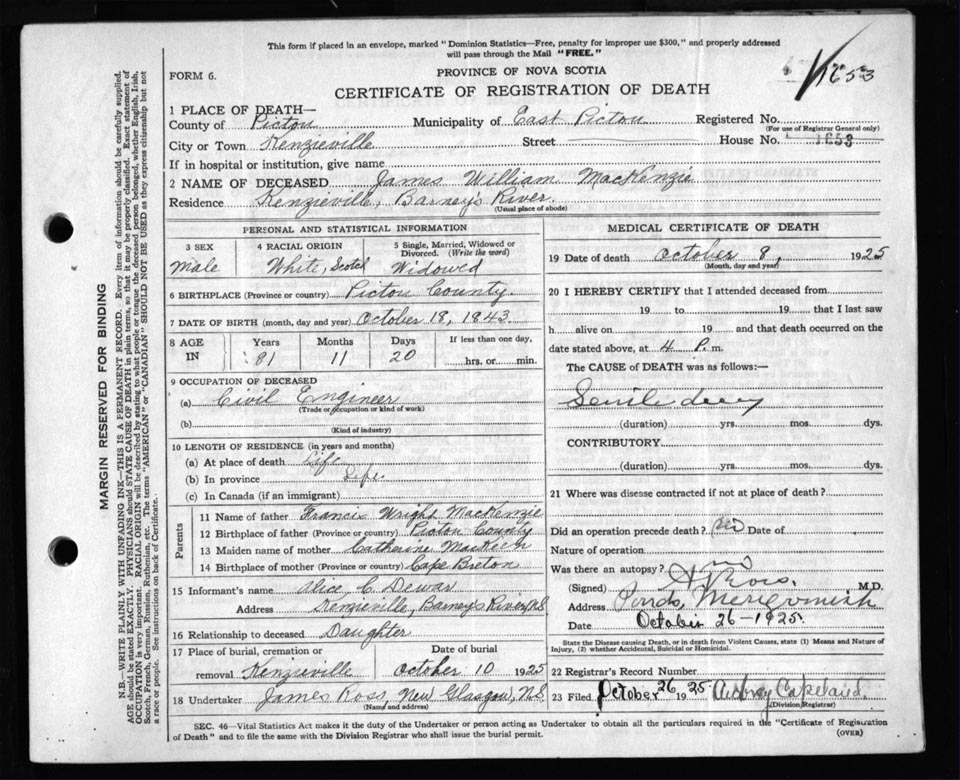 This form if placed in an envelope, marked "Dominion Statistics—Free, penalty for improper use $300," and properly addressed
will pass through the Mail "FREE."
FORM 6.
PROVINCE OF NOVA SCOTIA
1653
CERTIFICATE OF REGISTRATION OF DEATH
1 PLACE OF DEATH—
County of Pictou Municipality of East Pictou Registered No.
(For use of Registrar General only)
City or Town Kenzieville Street House No. 1653
If in hospital or institution, give name
2 NAME OF DECEASED James William MacKenzie
Residence Kenzieville, Barneys River.
(Usual place of abode)
PERSONAL AND STATISTICAL INFORMATION
3 SEX 4 RACIAL ORIGIN 5 Single, Married, Widowed or
Divorced. (Write the word)
Male White, Scotch Widowed
6 BIRTHPLACE (Province or country) Pictou County.
7 DATE OF BIRTH (month, day and year) October 18, 1843.
8 AGE Years Months Days If less than one day,
IN 81 11 20 hrs. or min.
9 OCCUPATION OF DECEASED
(a) Civil Engineer
(Trade or occupation or kind of work)
(b)
(Kind of industry)
10 LENGTH OF RESIDENCE (in years and months)
(a) At place of death Life
(b) In province Life.
(c) In Canada (if an immigrant)
Parents
11 Name of father Francis Wright MacKenzie
12 Birthplace of father (Province or country) Pictou County
13 Maiden name of mother Catherine
14 Birthplace of mother (Province or country) Cape Breton
15 Informant's name Alice C. Dewar
Address Kenzieville, Barney's River, N.S.
16 Relationship to deceased Daughter
17 Place of burial, cremation or Date of burial
removal Kenzieville October 10 1925
18 Undertaker James Ross, New Glasgow, N.S.
(Name and address)
MEDICAL CERTIFICATE OF DEATH
19 Date of death October 8, 1925
(Month, day and year)
20 I HEREBY CERTIFY that I attended deceased from
19 to 19 that I last saw
h alive on 19 and that death occurred on the
date stated above, at 4 P. m.
The CAUSE of DEATH was as follows:—
Senile decay
(duration) yrs. mos. dys.
CONTRIBUTORY
(duration) yrs. mos. dys.
21 Where was disease contracted if not at place of death?
Did an operation precede death? no Date of
Nature of operation
Was there an autopsy? no
(Signed) Ross. M.D.
Address Ponds, Merigomish
Date October 26-1925.
State the Disease causing Death, or in death from Violent Causes, state (1) Means and Nature of
Injury, (2) whether Accidental, Suicidal or Homicidal.
22 Registrar's Record Number
23 Filed October 26 1925 Aubrey Copeland.
(Division Registrar)
SEC. 46—Vital Statistics Act makes it the duty of the Undertaker or person acting as Undertaker to obtain all the particulars required in the "Certificate of Registration
of Death" and to file the same with the Division Registrar who shall issue the burial permit.
(OVER)
MARGIN RESERVED FOR BINDING
N.B.—WRITE PLAINLY WITH UNFADING INK—THIS IS A PERMANENT RECORD. Every item of information should be carefully supplied.
AGE should be stated EXACTLY. PHYSICIANS should STATE CAUSE OF DEATH in plain terms, so that it may be properly classified. Exact statement of
OCCUPATION is very important. RACIAL ORIGIN will be described by stating to what people or tongue the deceased person belonged, whether English, Irish,
Scotch, French, German, Russian, Ruthenian, etc. The terms "AMERICAN" or "CANADIAN" SHOULD NOT BE USED as they express citizenship but not
a race or people. See instructions on back of Certificate.